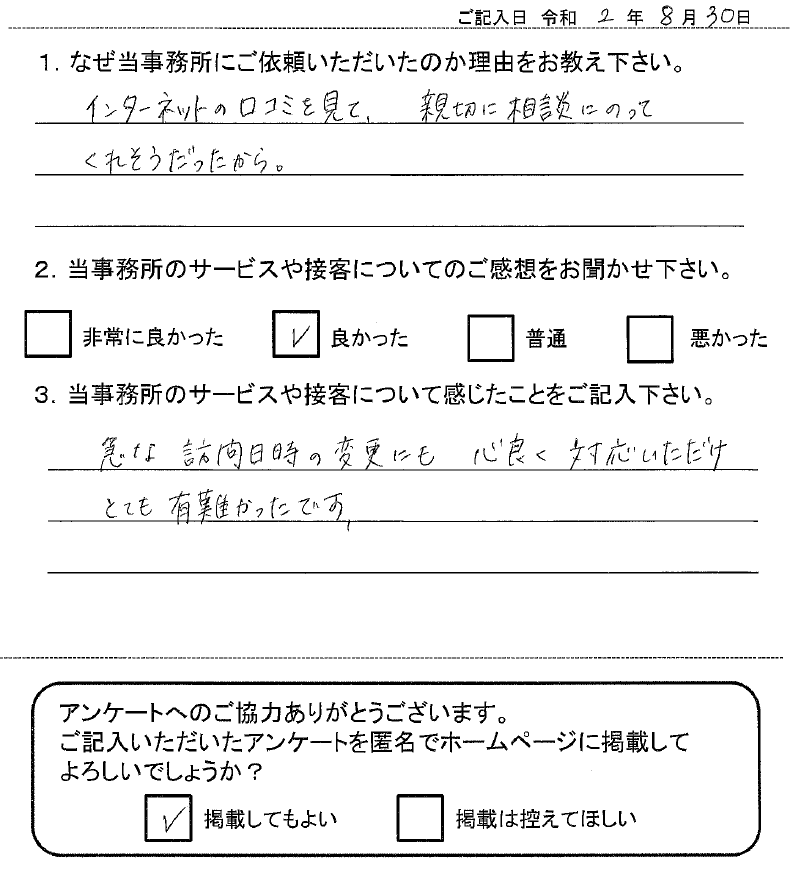 ご記入日 令和 2 年 8 月 30 日
1. なぜ当事務所にご依頼いただいたのか理由をお教え下さい。
インターネットの口コミを見て、 親切に相談にのって
くれそうだったから。
2. 当事務所のサービスや接客についてのご感想をお聞かせ下さい。
非常に良かった ✓ 良かった 普通 悪かった
3. 当事務所のサービスや接客について感じたことをご記入下さい。
急な 訪問日時の変更にも 心良く 対応いただけ
とても 有難かったです、
アンケートへのご協力ありがとうございます。
ご記入いただいたアンケートを匿名でホームページに掲載して
よろしいでしょうか？
✓ 掲載してもよい 掲載は控えてほしい